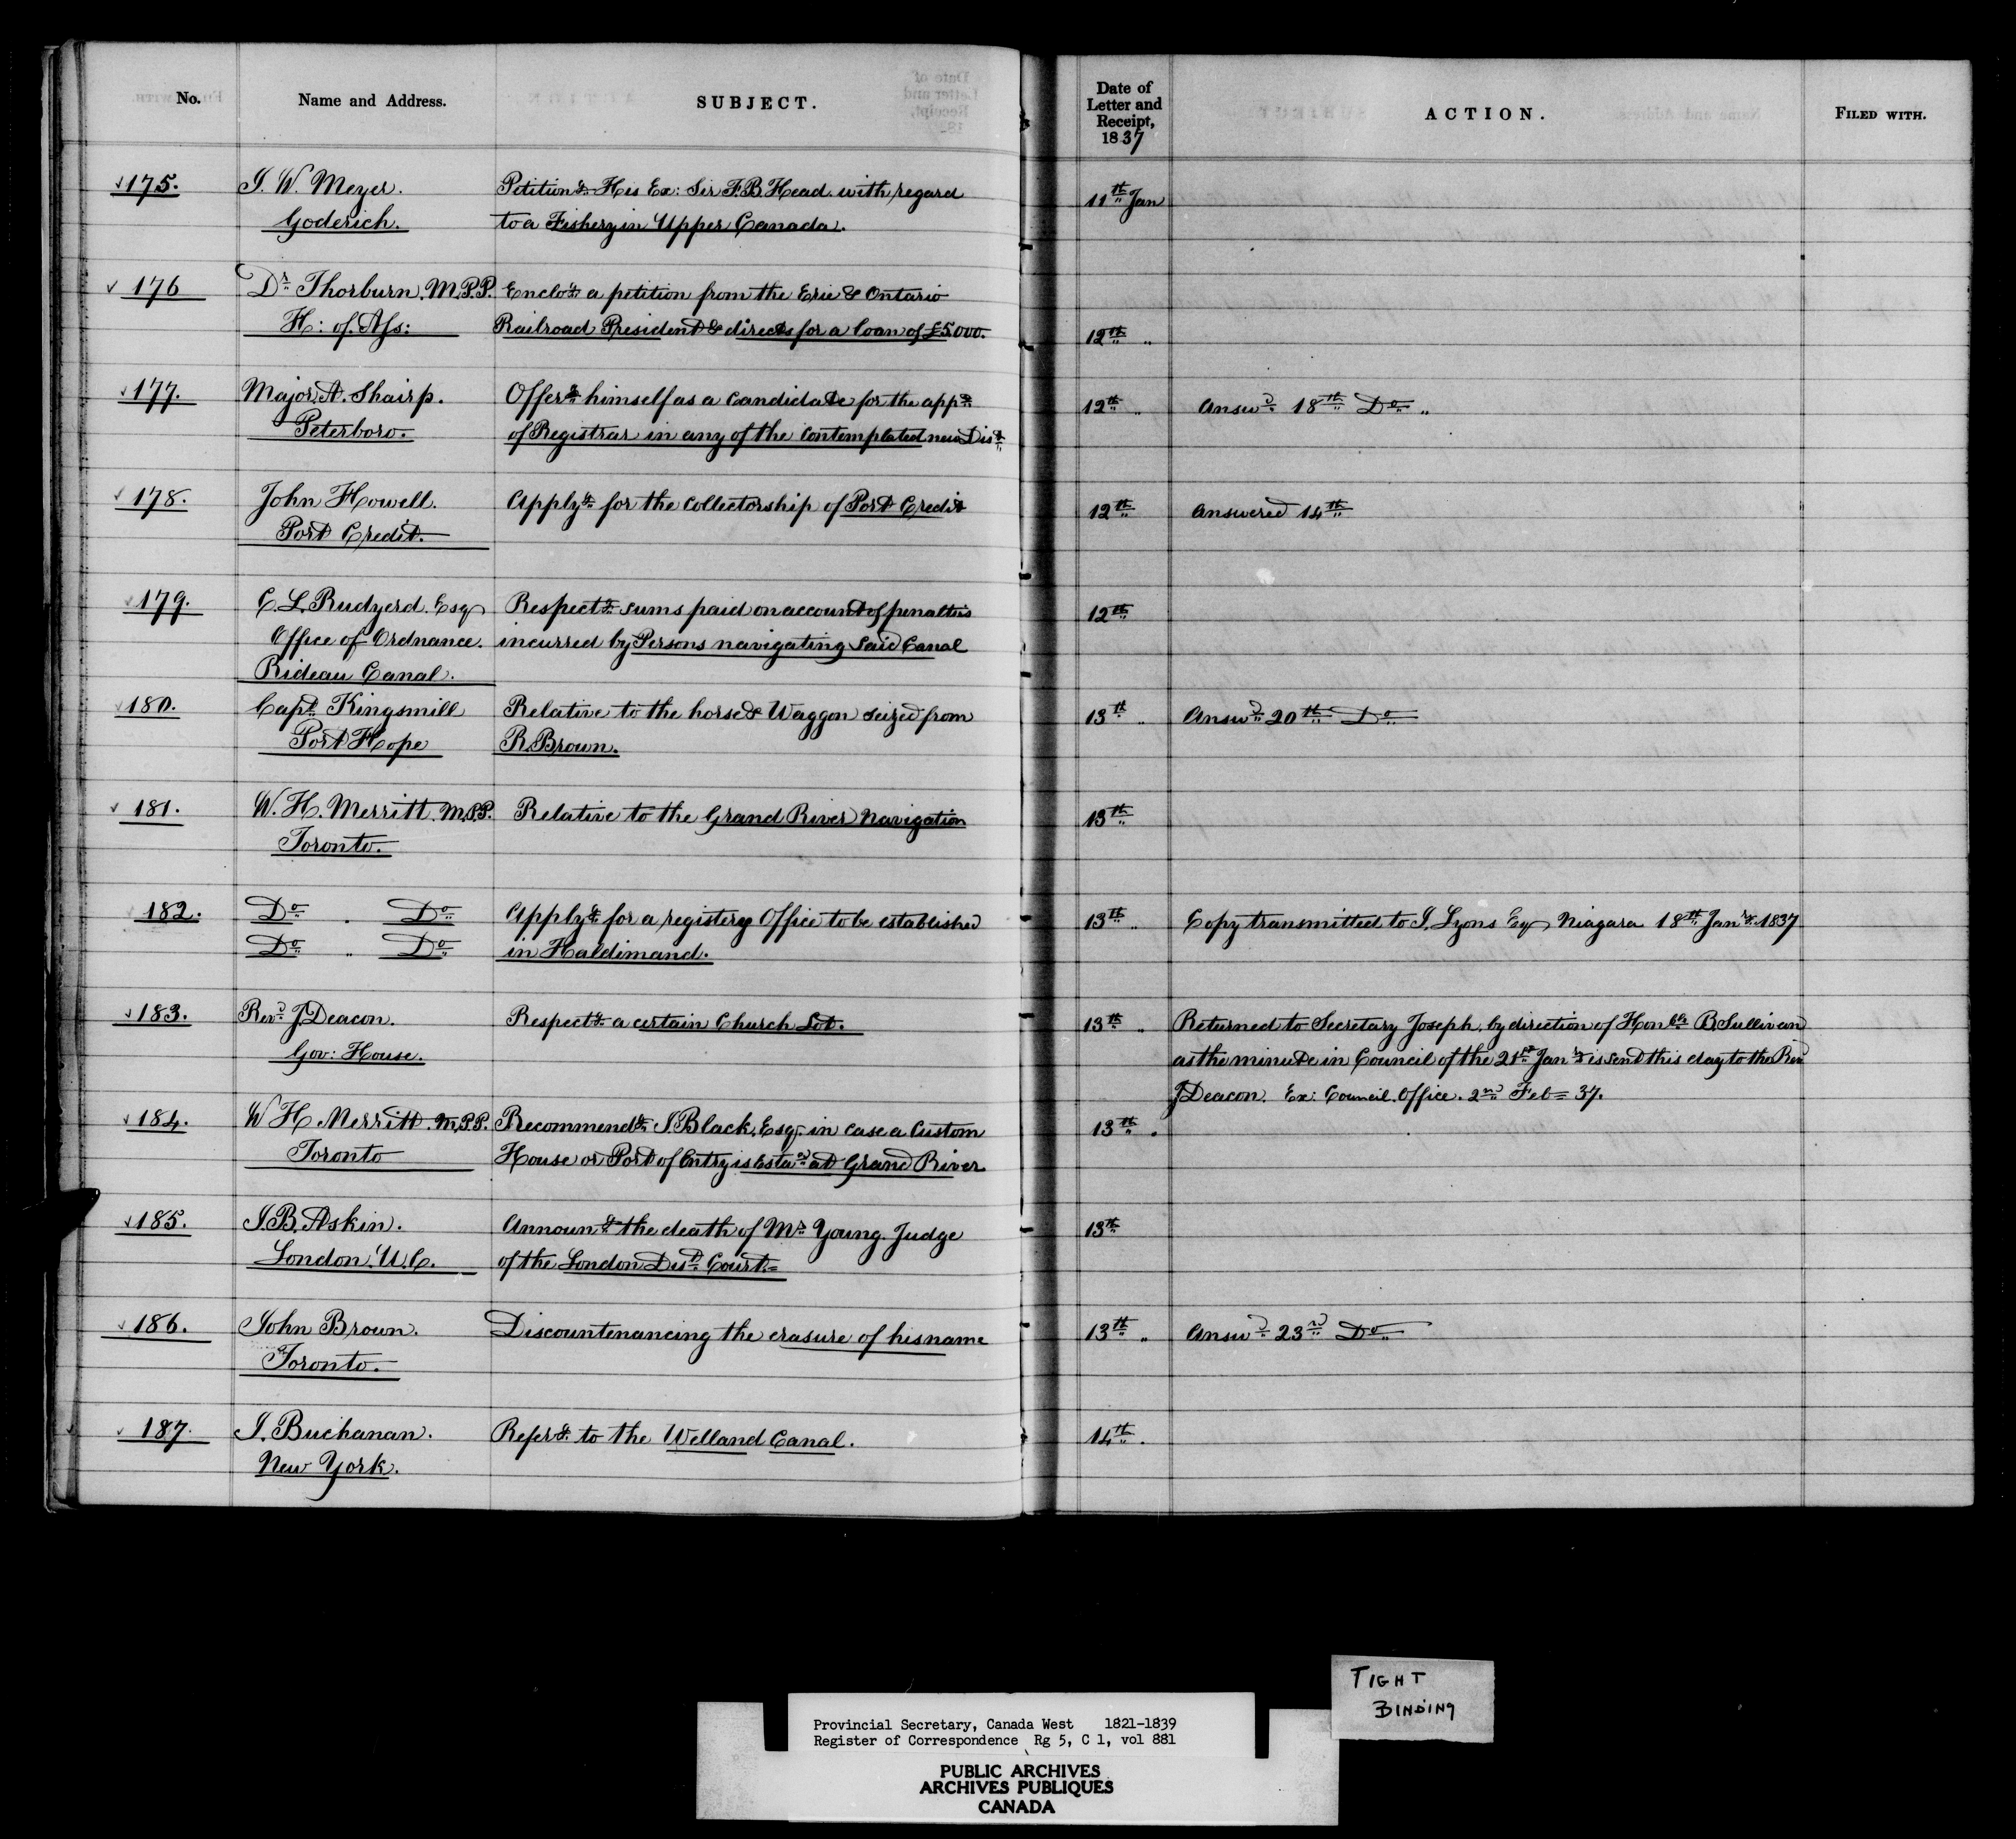 No. Name and Address. SUBJECT. Date of Letter and Receipt, 1837 ACTION. FILED WITH.
175. I. W. Meyer. Petition.g His Ex: Sir F.B Head. with regard 11th Jan
Goderich. to a Fishery in Upper Canada.
176 Dr Thorburn. M.P.P. Enclo'g a petition from the Erie & Ontario
H: of. Ass: Railroad President & directs for a loan of £5.000. 12th "
177. Major A. Shairp. Offer'g himself as a Candidate for the app't 12th " Answd 18th Do "
Peterboro. of Registrar in any of the contemplated new Dis't
178. John Howell. Apply'g for the Collectorship of Port Credit 12th Answered 14th
Port Credit.
179. C. L. Rudyerd. Esq Respect'g sums paid on account of penalties 12th
Office of Ordnance. incurred by Persons navigating said Canal
Rideau Canal.
180. Capt. Kingsmill Relative to the horse & Waggon seized from 13th " Answd 20th Do
Port Hope R. Brown.
181. W. H. Merritt. M.P.P. Relative to the Grand River Navigation 13th
Toronto.
182. Do " Do Apply'g for a registery Office to be established 13th " Copy transmitted to I. Lyons Esq, Niagara 18th Jany. 1837
Do " Do in Haldimand.
183. Revd J Deacon. Respect'g a certain Church Lot. 13th " Returned to Secretary Joseph, by direction of Honble B Sullivan
Gov: House. as the minute in Council of the 21st Jany is send this day to the Rev
J Deacon. Ex: Council. Office. 2nd Feb = 37.
184. W H Merritt. M.P.P. Recommend'g I. Black, Esq. in case a Custom 13th .
Toronto House or Port of Entry is Estad at Grand River
185. I. B. Askin. Announ'g the death of Mr Young. Judge 13th
London. U. C. of the London Dist Court. =
186. John Brown. Discountenancing the erasure of his name 13th " Answd 23rd Do
Toronto.
187. I. Buchanan. Refer'g to the Welland Canal. 14th .
New York.
TIGHT
BINDING
Provincial Secretary, Canada West 1821-1839
Register of Correspondence Rg 5, C 1, vol 881
PUBLIC ARCHIVES
ARCHIVES PUBLIQUES
CANADA